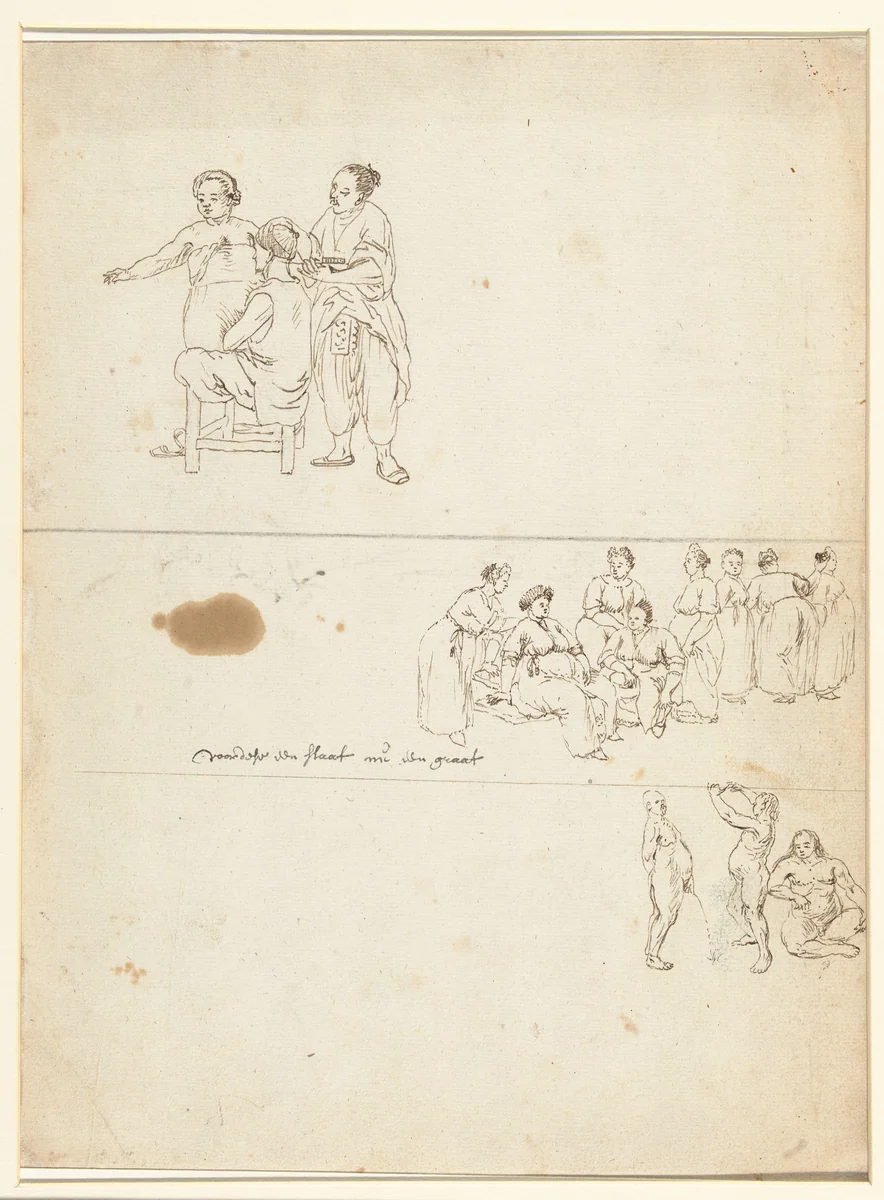 voordese een slaat nu een graat